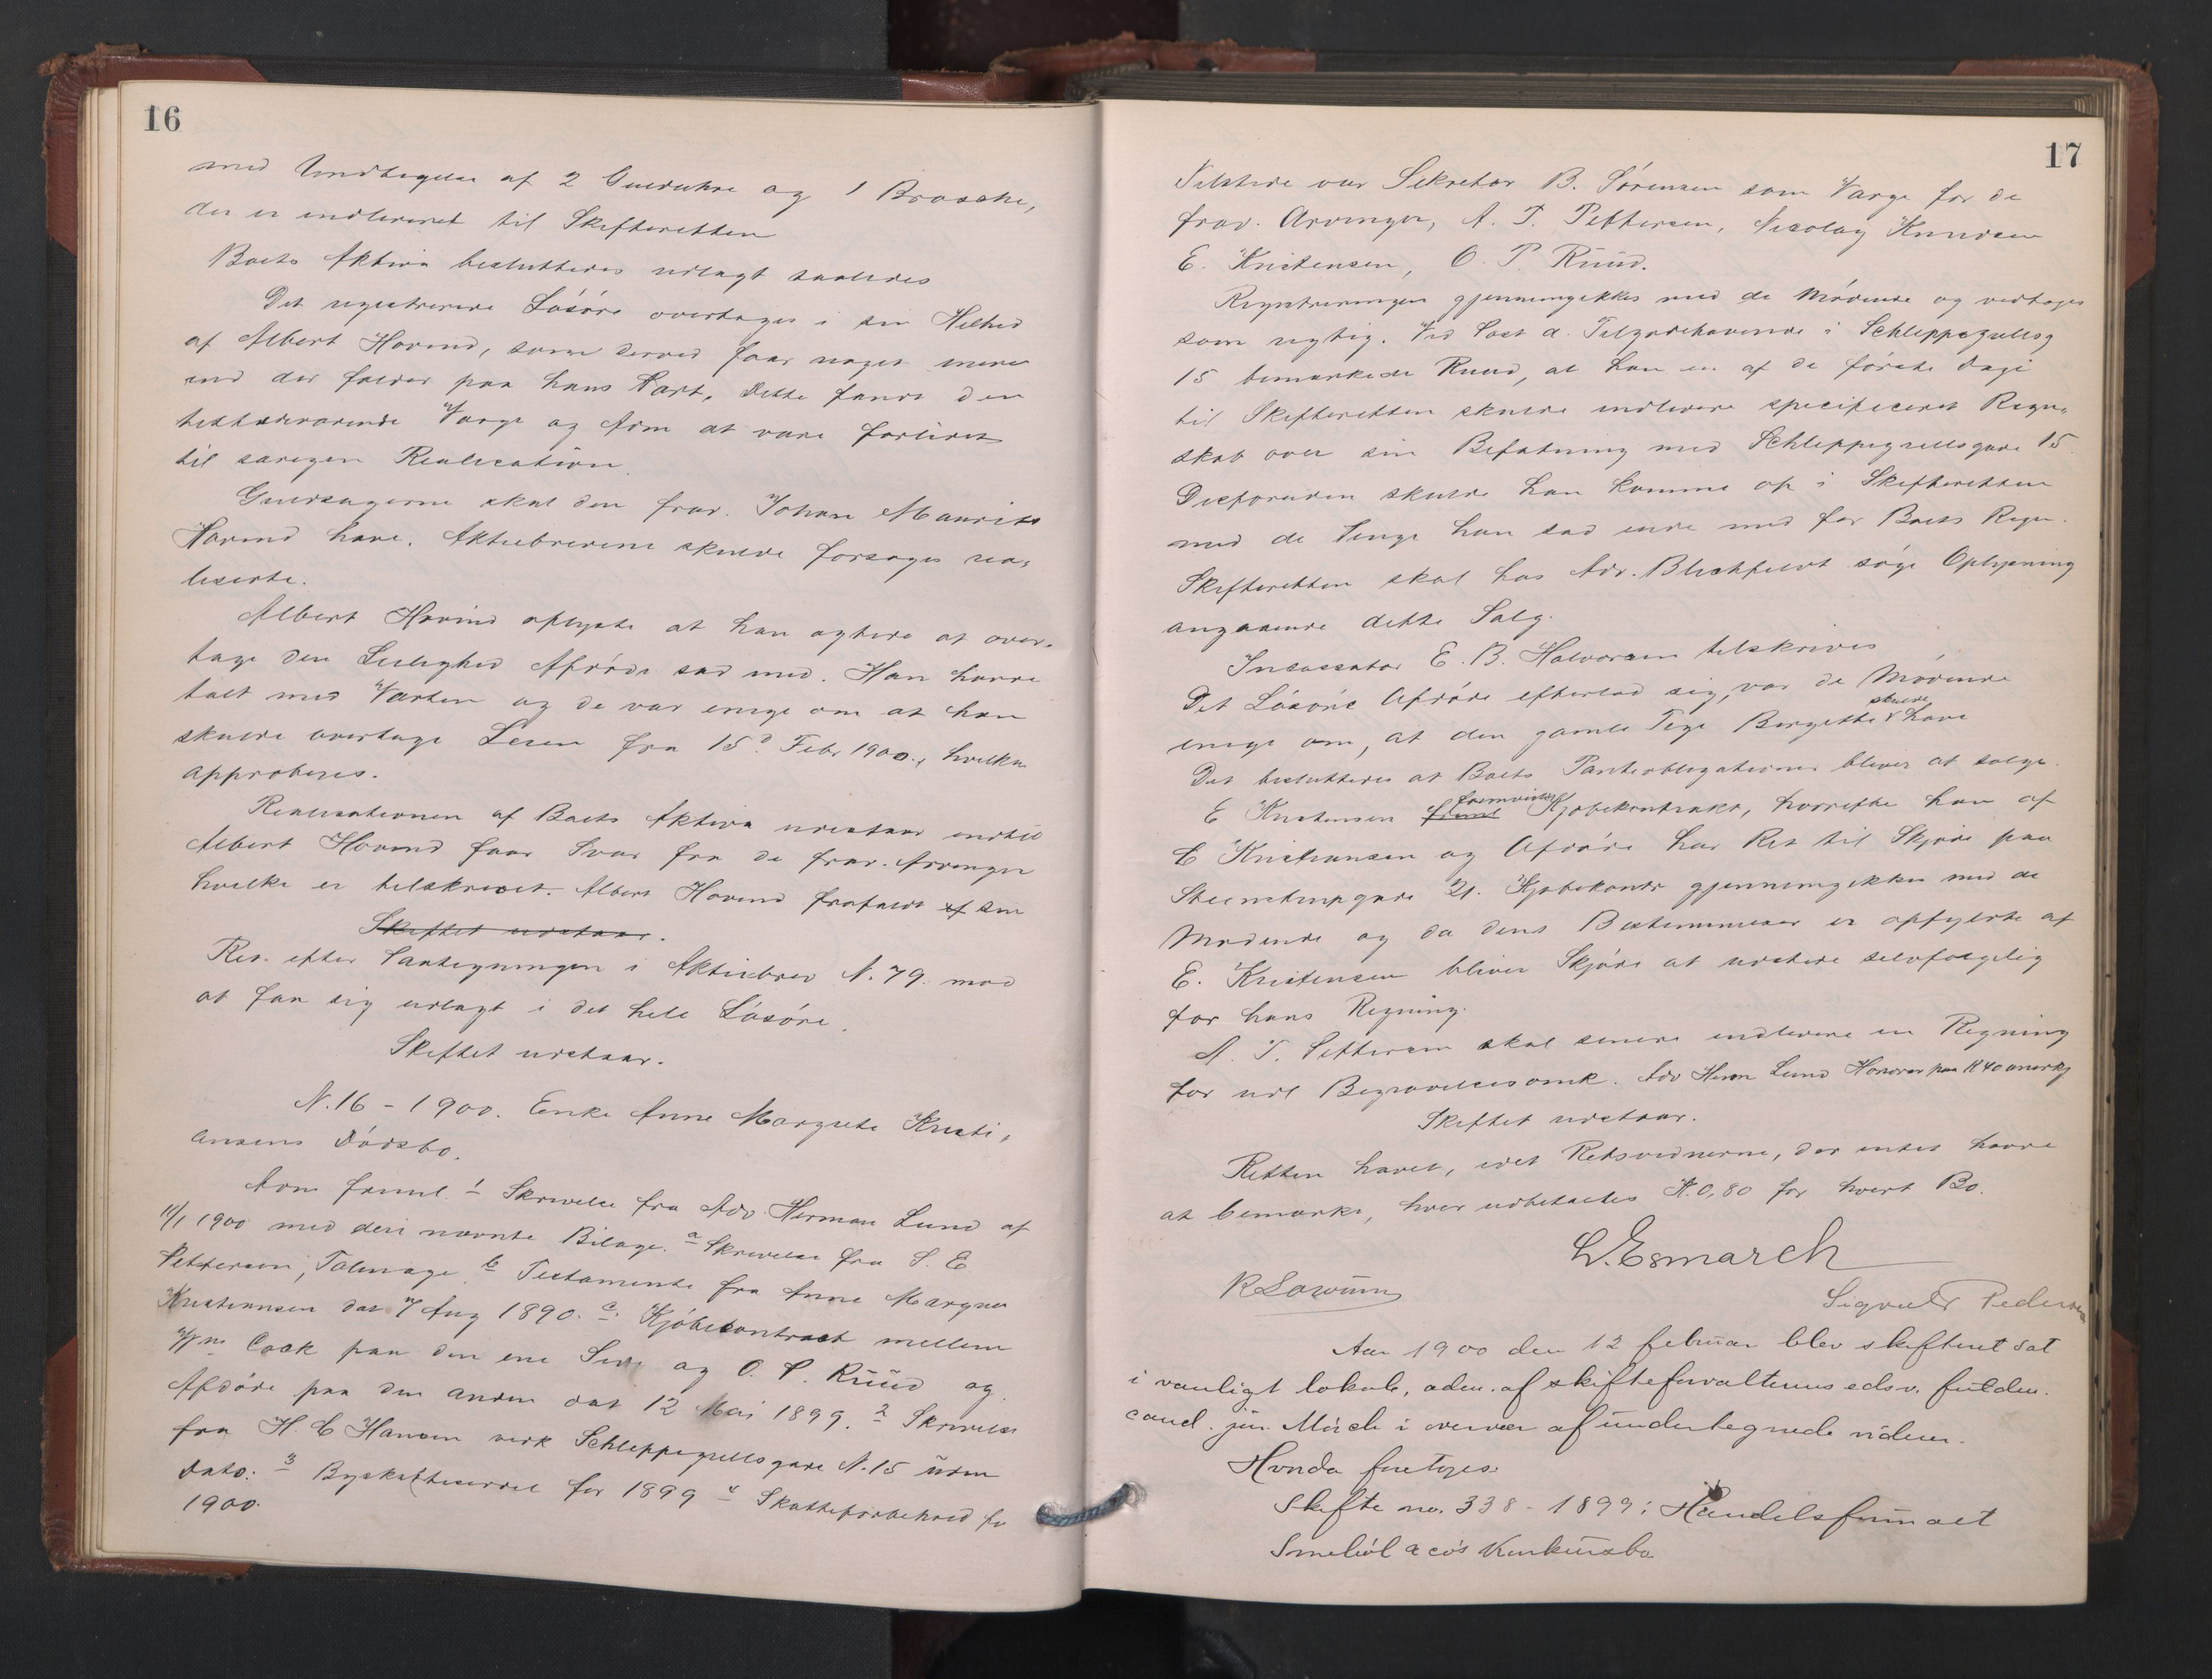 16
med Undtagelse af 2 Gulduhre og 1 Brosche,
der er indleveret til Skifteretten
Boets Aktiva besluttedes udlagt saaledes
Det registrerede Løsøre overtages i sin Helhed
af Albert Hovind, som derved faar noget mere
end der falder paa hans Part. Dette fandt den
tilstedeværende Værge og Adm at være
til særegen Realisation.
Guldsagerne skal den frav. Johan Maurits
Hovind have. Aktiebrevene skulde forsøges rea-
liserte.
Albert Hovind oplyste at han agtede at over-
tage den Leilighed Afdøde sad med. Han havde
talt med Værten og de var enige om at han
skulde overtage Leien fra 15d Febr 1900, hvilket
approberes.
Realisationen af Boets Aktiva udestaar indtil
Albert Hovind faar Svar fra de frav. Arvinger
hvilke er tilskrevet. Albert Hovind frafaldt af sin
Skiftet udstaar.
Ret efter Pantegningen i Aktiebrev N. 79 mod
at faa sig udlagt i det hele Løsøre.
Skiftet udstaar.
N. 16 - 1900. Enke Anne Margrete Kristi-
ansens Dødsbo.
Adm freml. 1 Skrivelse fra Adv Herman Lund af
11/1 1900 med deri nævnte Bilage. a Skrivelse fra S. E
Pettersen, Talmage. b Testamente fra Anne Margrete
Kristiansen dat 7 Aug 1890. c. Kjøbecontract mellem
Wm Cook paa den ene Side og O. P. Ruud og
Afdøde paa den anden dat 12 Mai 1899. 2 Skrivelse
fra H. C Hansen vedk Schleppegrellsgade N. 15 uden
Dato. 3 Byskatteseddel for 1899 4 Skatteforbehold for
1900.
17
Tilstede var Sekretær B. Sørensen som Værge for de
frav. Arvinger, A. T. Pettersen, Nicolay Knudsen
E. Kristensen, O. P. Ruud.
Registreringen gjennemgikkes med de Mødende og vedtoges
som rigtig. Ved Post a. Tilgodehavende i Schleppegrellsg
15 bemærkede Ruud, at han en af de første Dage
til Skifteretten skulde indlevere specificeret Regn-
skab over sin Befatning med Schleppegrellsgade 15
Desforuden skulde han komme op i Skifteretten
med de Penge han sad inde med for Boets Regn.
Skifteretten skal hos Adv. Blichfeldt søge Oplysning
angaaende dette Salg.
Incassator E. B. Halvorsen tilskrives
Det Løsøre Afdøde efterlod sig, var de Mødende
enige om, at den gamle Pige Bergitte skulde have
Det besluttedes at Boets Panteobligationer bliver at sælge.
E Kristensen freml fremviste Kjøbekontrakt, hvorefter han af
C Kristiansen og Afdøde har Ret til Skjøde paa
Steenstrupgade 21. Kjøbekontr gjennemgikkes med de
Mødende og da dens Bestemmelser er opfyldte af
E. Kristensen bliver Skjøde at udstede selvfølgelig
for hans Regning.
A. T. Pettersen skal senere indlevere en Regning
for udl Begravelsesomk. Adv Herm Lund Honorar paa K 40 anerkj
Skiftet udstaar.
Retten hævet, idet Retsvidnerne, der intet havde
at bemærke, hver udbetaltes K. 0,80 for hvert Bo.
L. Esmarch
Sigvald Pedersen
Aar 1900 den 12 februar blev skifteret sat
i vanligt lokale, adm. af skifteforvalterens edsv. fuldm.
cand. jur. Mørch i overvær af undertegnede vidner.
Hvorda foretoges:
Skifte no. 338 - 1899: Handelsfirmaet
& co's Konkursbo